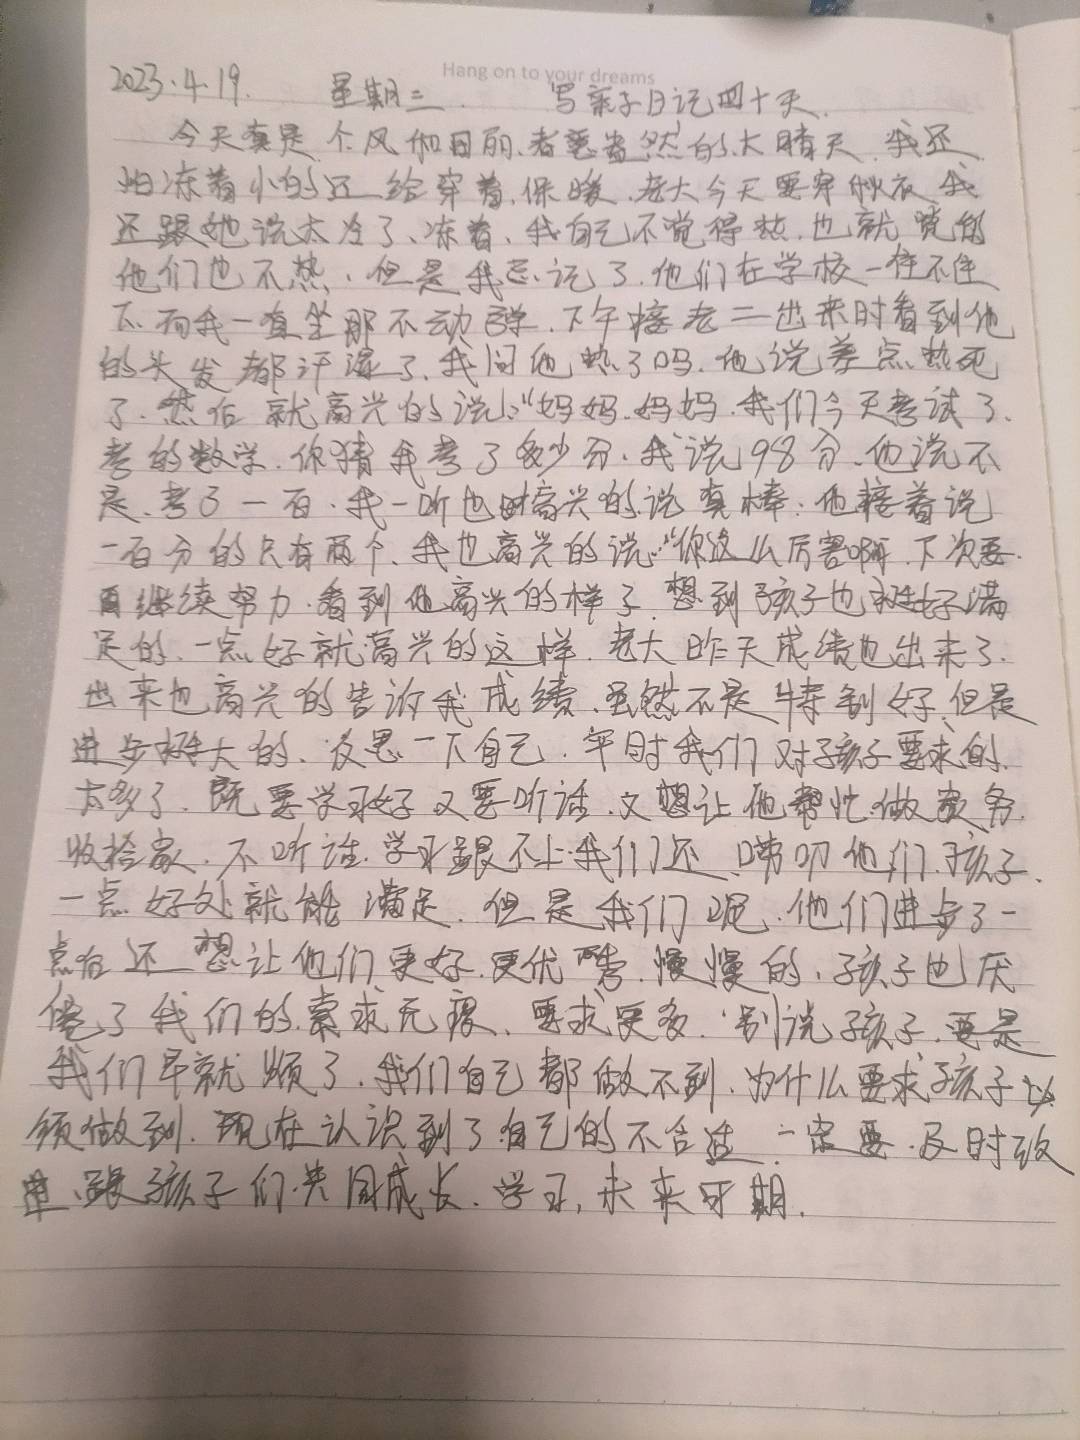 Hang on to your dreams
2023.4.19. 星期三. 写亲子日记四十天.
今天真是个风和日丽、春意盎然的大晴天.我还
怕冻着小的还给穿着.保暖.老大今天要穿秋衣我
还跟她说太冷了、冻着、我自己不觉得热.也就觉的
他们也不热、但是我忘记了.他们在学校一住不住
的头发都汗湿了、我问他热了吗.他说差点热死
了.然后就高兴的说:"妈妈.妈妈.我们今天考试了.
考的数学.你猜我考了多少分.我说98分.他说不
是.考了一百.我一听也高兴的说真棒.他接着说
一百分的只有两个、我也高兴的说:"你这么厉害啊.下次要
继续努力.看到他高兴的样子.想到孩子也挺好满
足的、一点好就高兴的这样.老大昨天成绩也出来了.
出来也高兴的告诉我成绩.虽然不是特别好.但是
进步挺大的.反思一下自己.平时我们对孩子要求的
太多了.既要学习好又要听话.又想让他帮忙做家务.
收拾家.不听话.学习跟不上.我们还唠叨他们.孩子
一点好处就能满足.但是我们呢.他们进步了一
点在还想让他们更好.更优秀.慢慢的.孩子也厌
倦了我们的索求无度、要求更多.别说孩子.要是
我们早就烦了.我们自己都做不到.为什么要求孩子必
须做到.现在认识到了自己的不合适.一定要.及时改
进、跟孩子们共同成长.学习,未来可期.